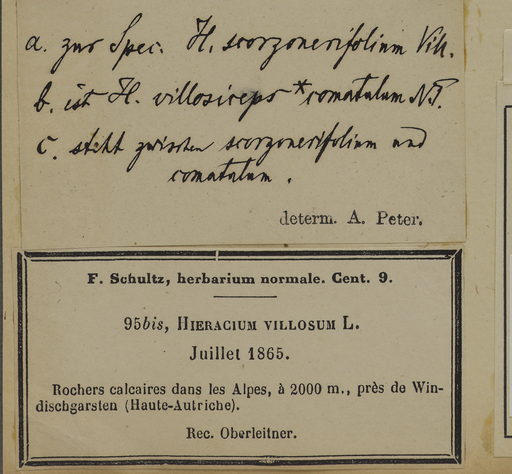 a. zur Spec. H. scorzonerifolium Vill.
b. ist H. villosiceps *comatulum N.P.
c. steht zwischen scorzonerifolium und
comatulum.
determ. A. Peter.
F. Schultz, herbarium normale. Cent. 9.
95bis, HIERACIUM VILLOSUM L.
Juillet 1865.
Rochers calcaires dans les Alpes, à 2000 m., près de Win-
dischgarsten (Haute-Autriche).
Rec. Oberleitner.